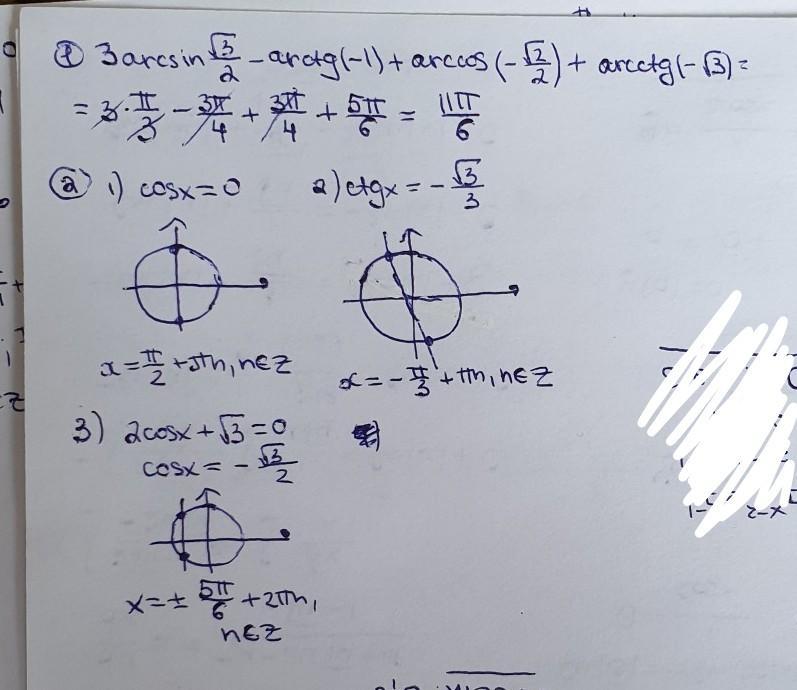 ① 3arcsin √3/2 - arctg(-1) + arccos(-√2/2) + arcctg(-√3) =
= 3·π/3 - 3π/4 + 3π/4 + 5π/6 = 11π/6
② 1) cosx=0 2) ctgx = -√3/3
x = π/2 + πn, n∈Z x = -π/3 + πn, n∈Z
3) 2cosx + √3 = 0
cosx = -√3/2
x = ± 5π/6 + 2πn,
n∈Z